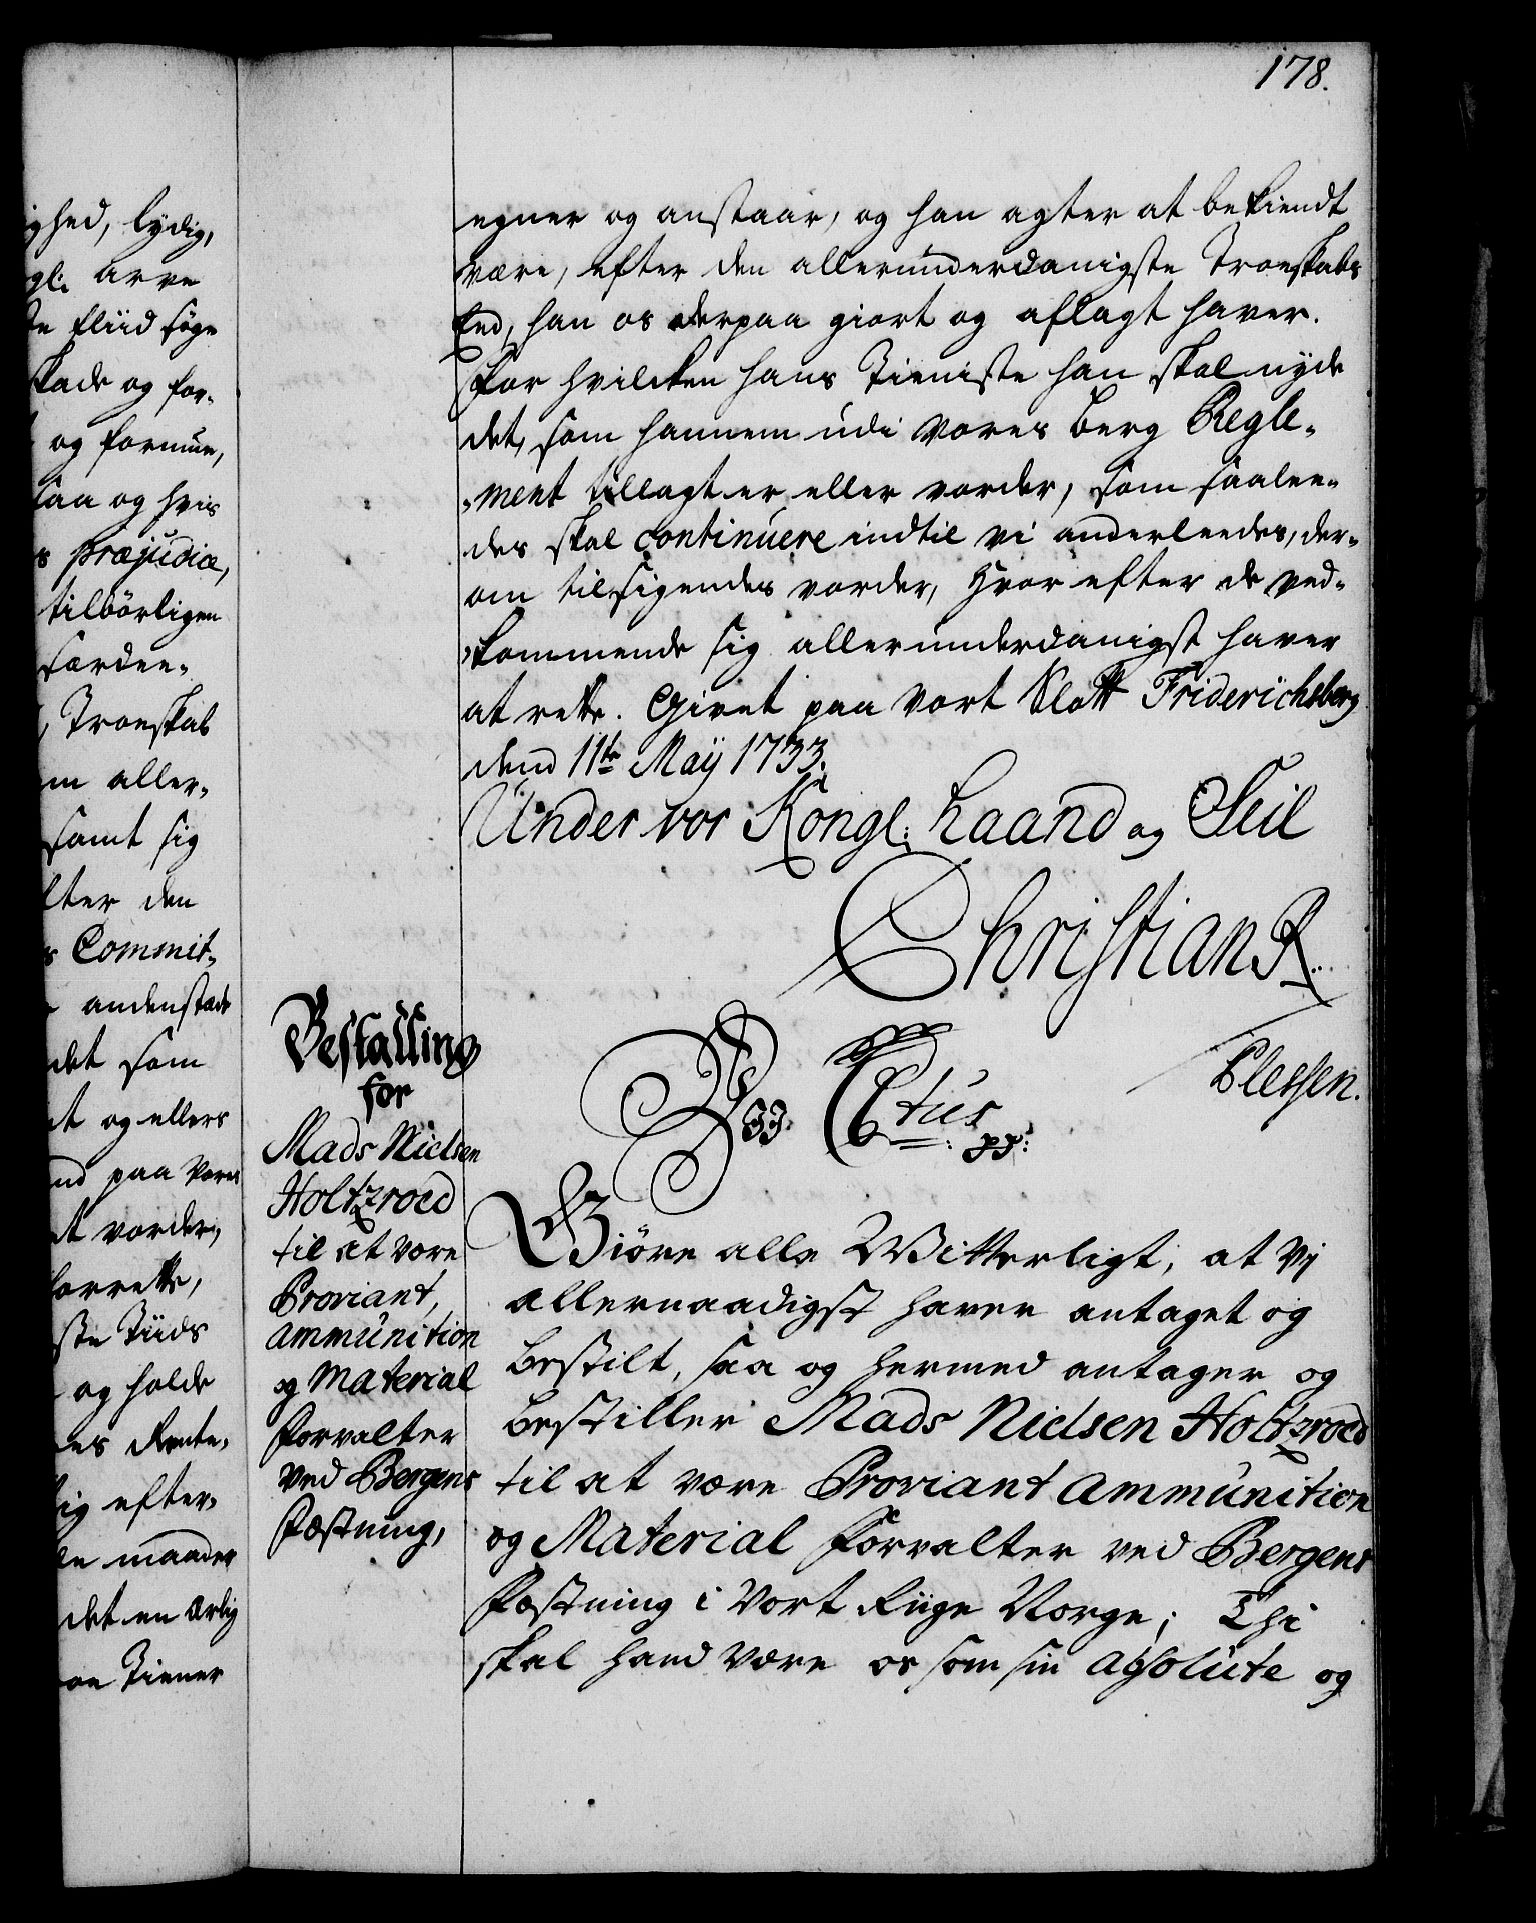 178.
ighed, lydig,
gl: arve
te fliid søge
skade og for-
og formue,
saa og hvis
s præjudice,
tilbörligen
særdee-
Troeskab
m aller-
samt sig
efter den
s Commit-
andenstæde
det som
t og ellers
nd paa Vores
et vorder,
forrette,
ste Tiids
og holde
es Rente-
sig efter-
le maader
det en ærlig
roe Tiener
egner og anstaar, og han agter at bekiendt
være, efter den allerunderdanigste Troeskabs
Eed, han os derpaa giort og aflagt haver.
For hvilcken hans Tieniste han skal nyde
det, som hannem udi Vores Berg Regle-
-ment tillagt er eller vorder, som saalee-
des skal continuere indtil vi anderleedes, der-
om tilsigendes vorder, Hvor efter de ved-
-kommende sig allerunderdanigst haver
at rette. Givet paa Vort Slott Friderichsberg
dend 11te Maÿ 1733.
Under vor Kongl: Haand og Seil
Christian R.
Plessen.
Bestalling
for
Mads Nielsen
Holtzroed
til at være
Proviant,
Ammunition
og Material
Forvalter
ved Bergens
Fæstning,
Ctus pp:
Giöre alle Witterligt, at Vj
allernaadigst haver antaget og
bestilt, saa og hermed antager og
bestiller Mads Nielsen Holtzroed
til at være Proviant Ammunition
og Material Forvalter ved Bergens
Fæstning i Vort Riige Norge; Thi
skal hand være os som sin absolute og